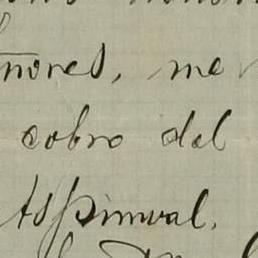 ñores, me
cobro del
Aspinwal.